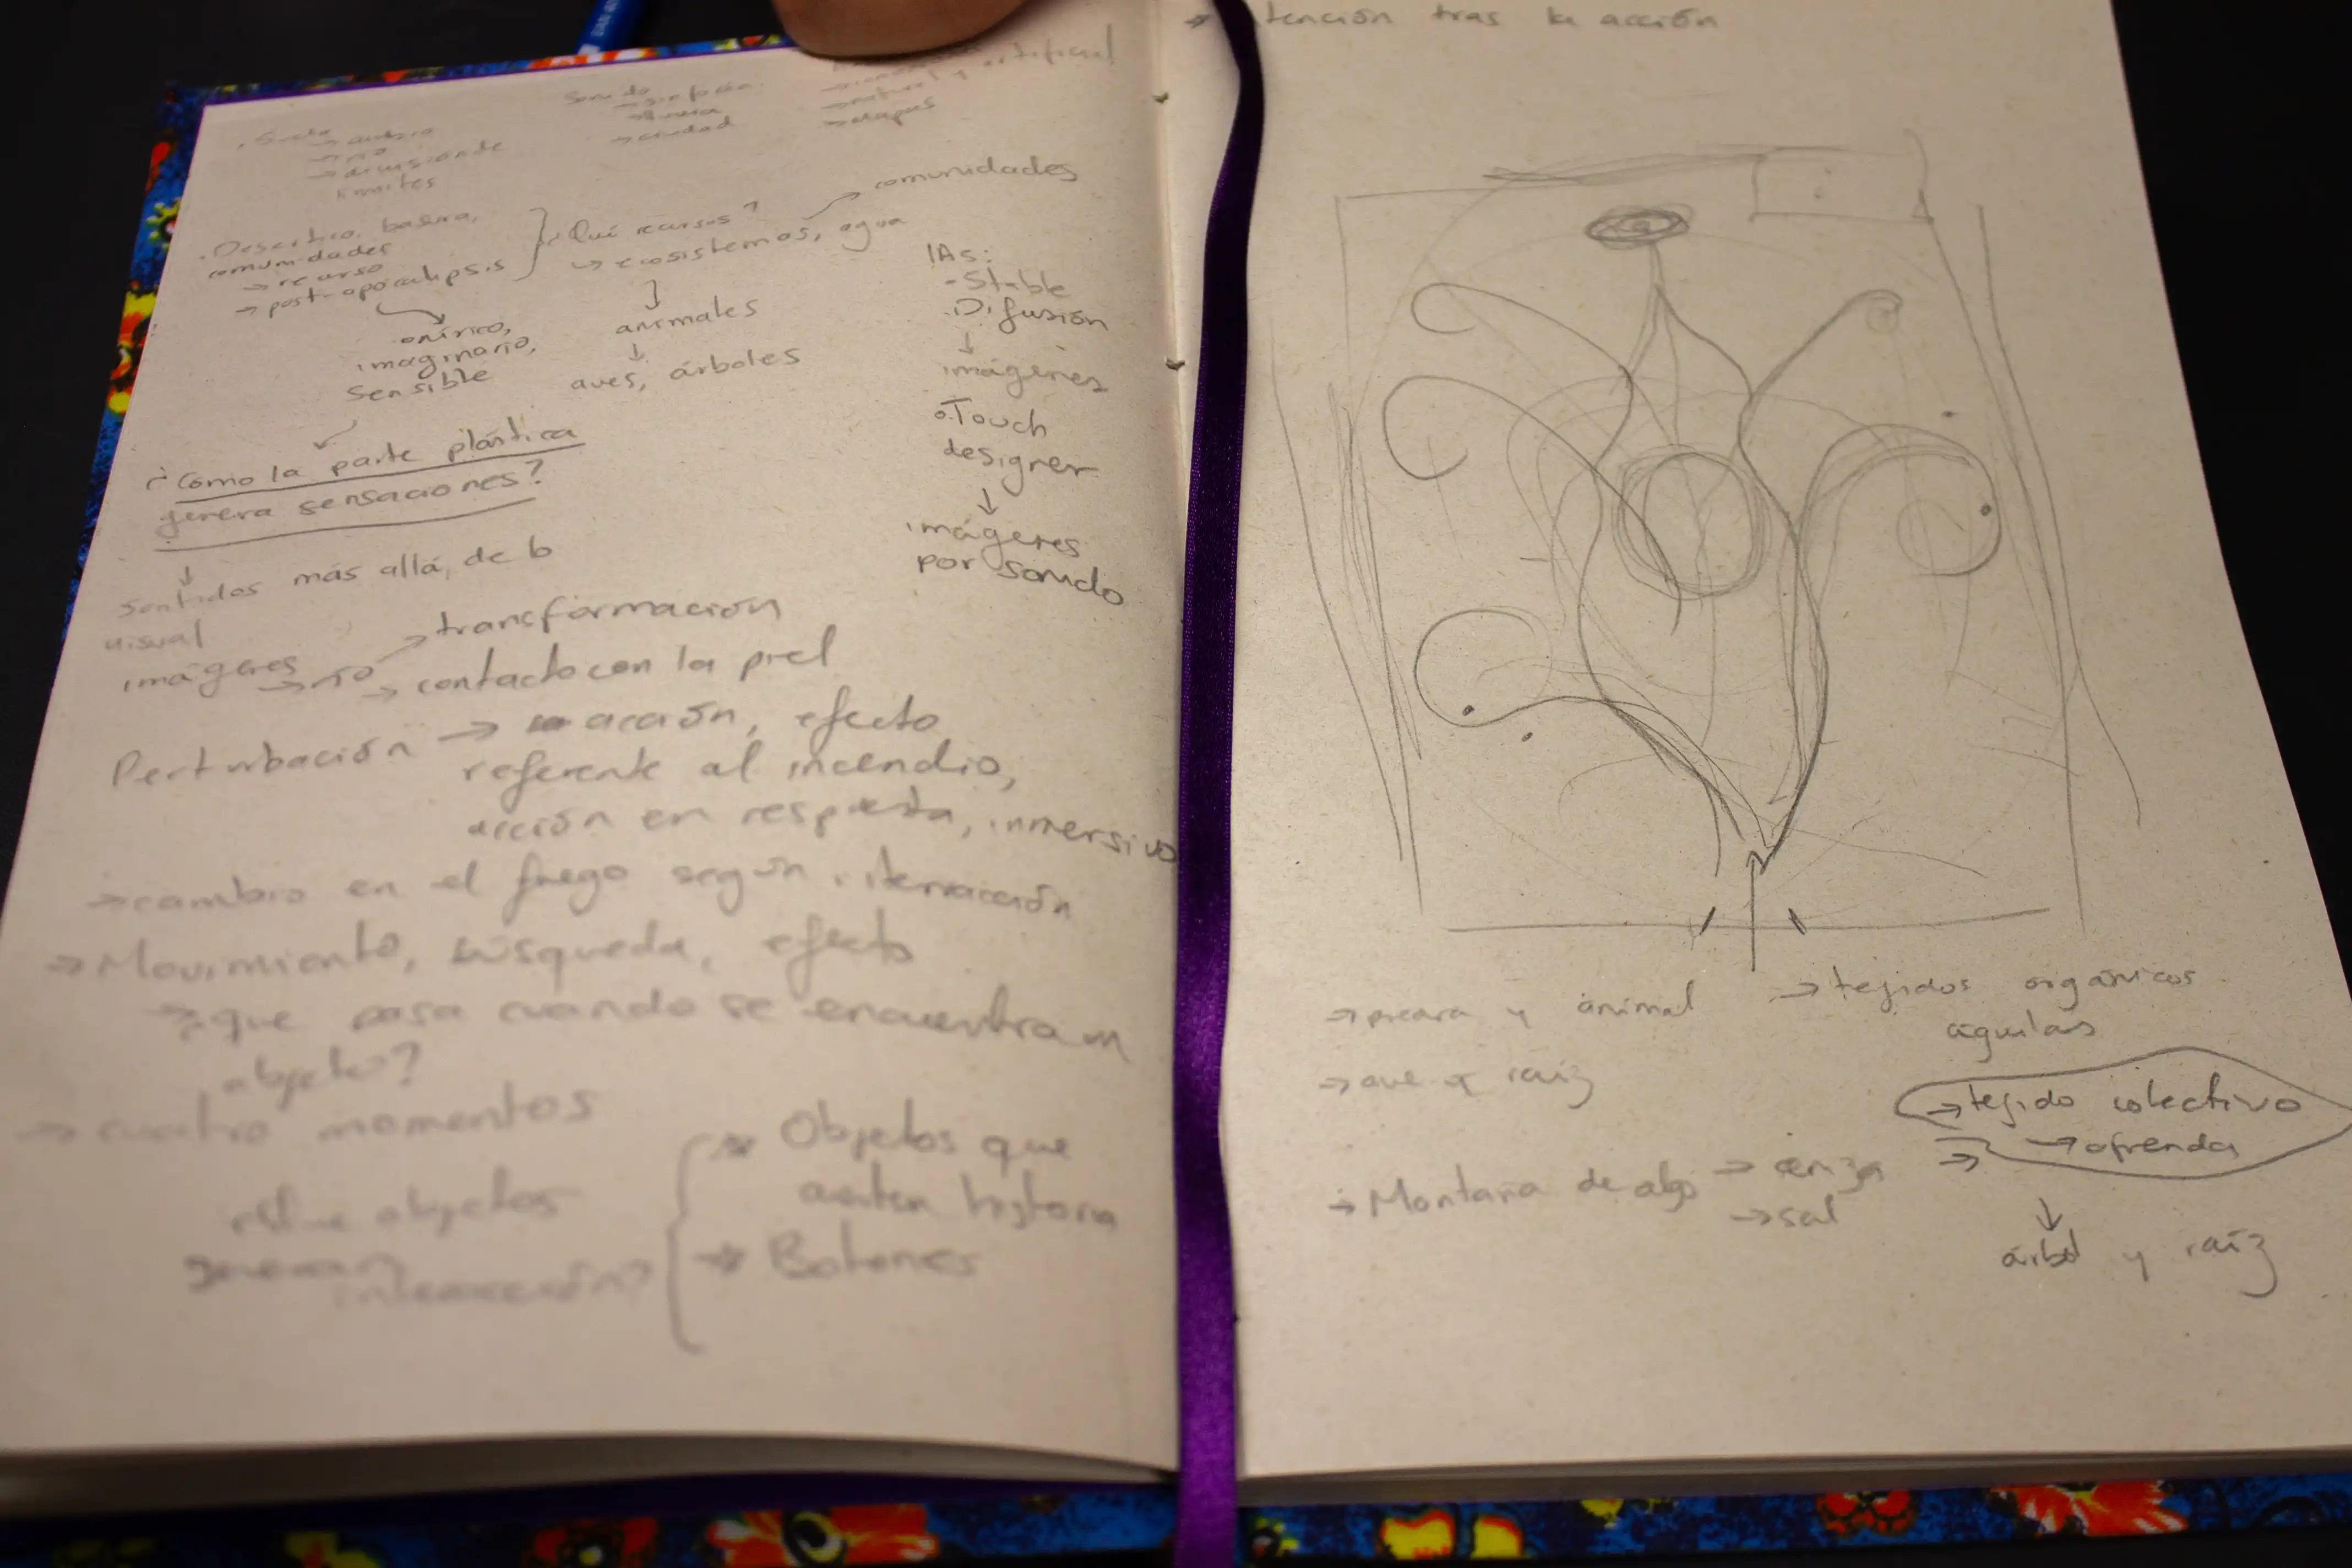 → ciudad
→ etapas
límites
comunidades
. Desértico, basura,
comunidades
→ recurso
→ post-apocalipsis
¿Qué recursos?
↳ ecosistemas, agua
onírico,
imaginario,
sensible
↓
animales
↓
aves, árboles
IAs:
- Stable
Difusión
↓
imágenes
o Touch
designer
↓
imágenes
por sonido
¿Cómo la parte plástica
genera sensaciones?
↓
Sentidos más allá, de lo
visual
imágenes → río → transformación
→ contacto con la piel
Perturbación → acción, efecto
referente al incendio,
acción en respuesta, inmersivo
→ cambio en el fuego según interacción
→ Movimiento, búsqueda, efecto
que pasa cuando se encuentra un
objeto?
→ cuatro momentos
objetos
generan
interacción?
Objetos que
cuenten historia
→ Botones
tención tras la acción
→ y animal
→ ave y raíz
→ Montaña de algo → ceniza
→ sal
→ tejidos orgánicos
águilas
→ tejido colectivo
→ ofrenda
→
↓
árbol y raíz